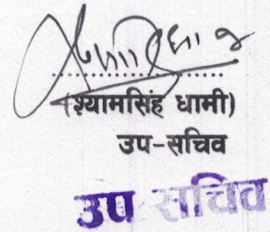 (श्यामसिंह धामी)
उप-सचिव
उप सचिव